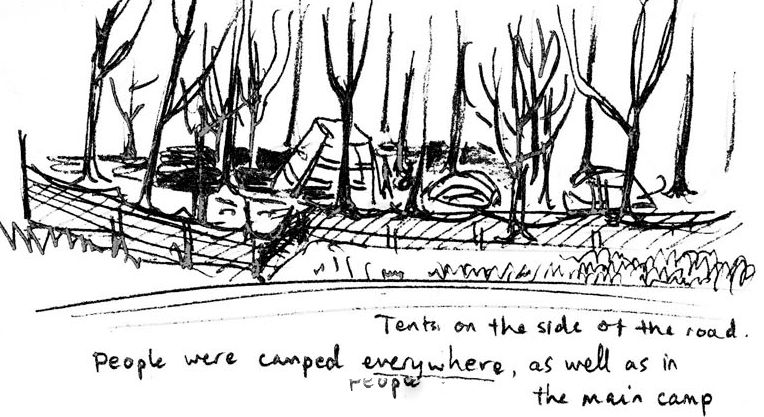 Tents on the side of the road.
People were camped everywhere, as well as in
People
the main camp